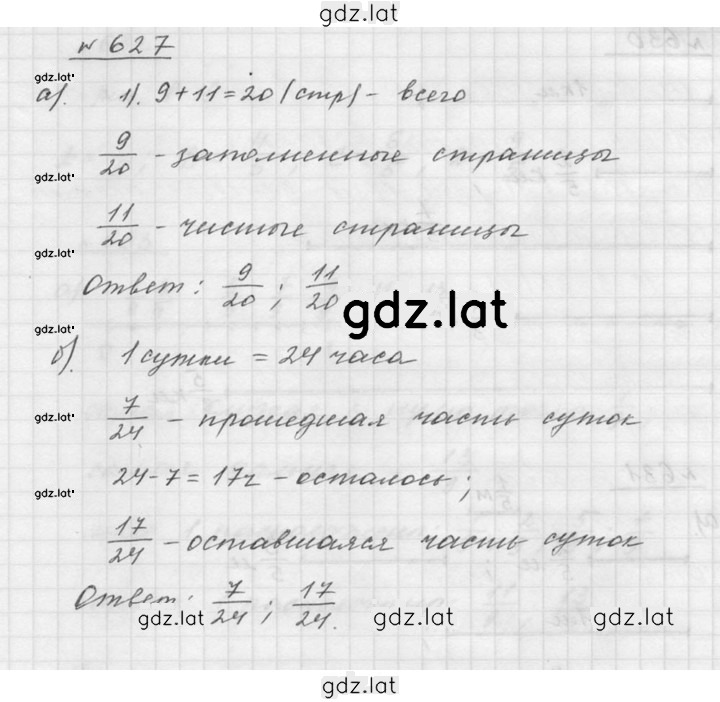 gdz.lat
№ 627
gdz.lat
а). 1). 9+11=20 (стр) - всего
9/20 - заполненные страницы
gdz.lat
11/20 - чистые страницы
gdz.lat
Ответ: 9/20; 11/20
gdz.lat
gdz.lat
б). 1 сутки = 24 часа
7/24 - прошедшая часть суток
gdz.lat
24-7=17ч - осталось;
gdz.lat
17/24 - оставшаяся часть суток
Ответ: 7/24; 17/24.
gdz.lat gdz.lat gdz.lat
gdz.lat